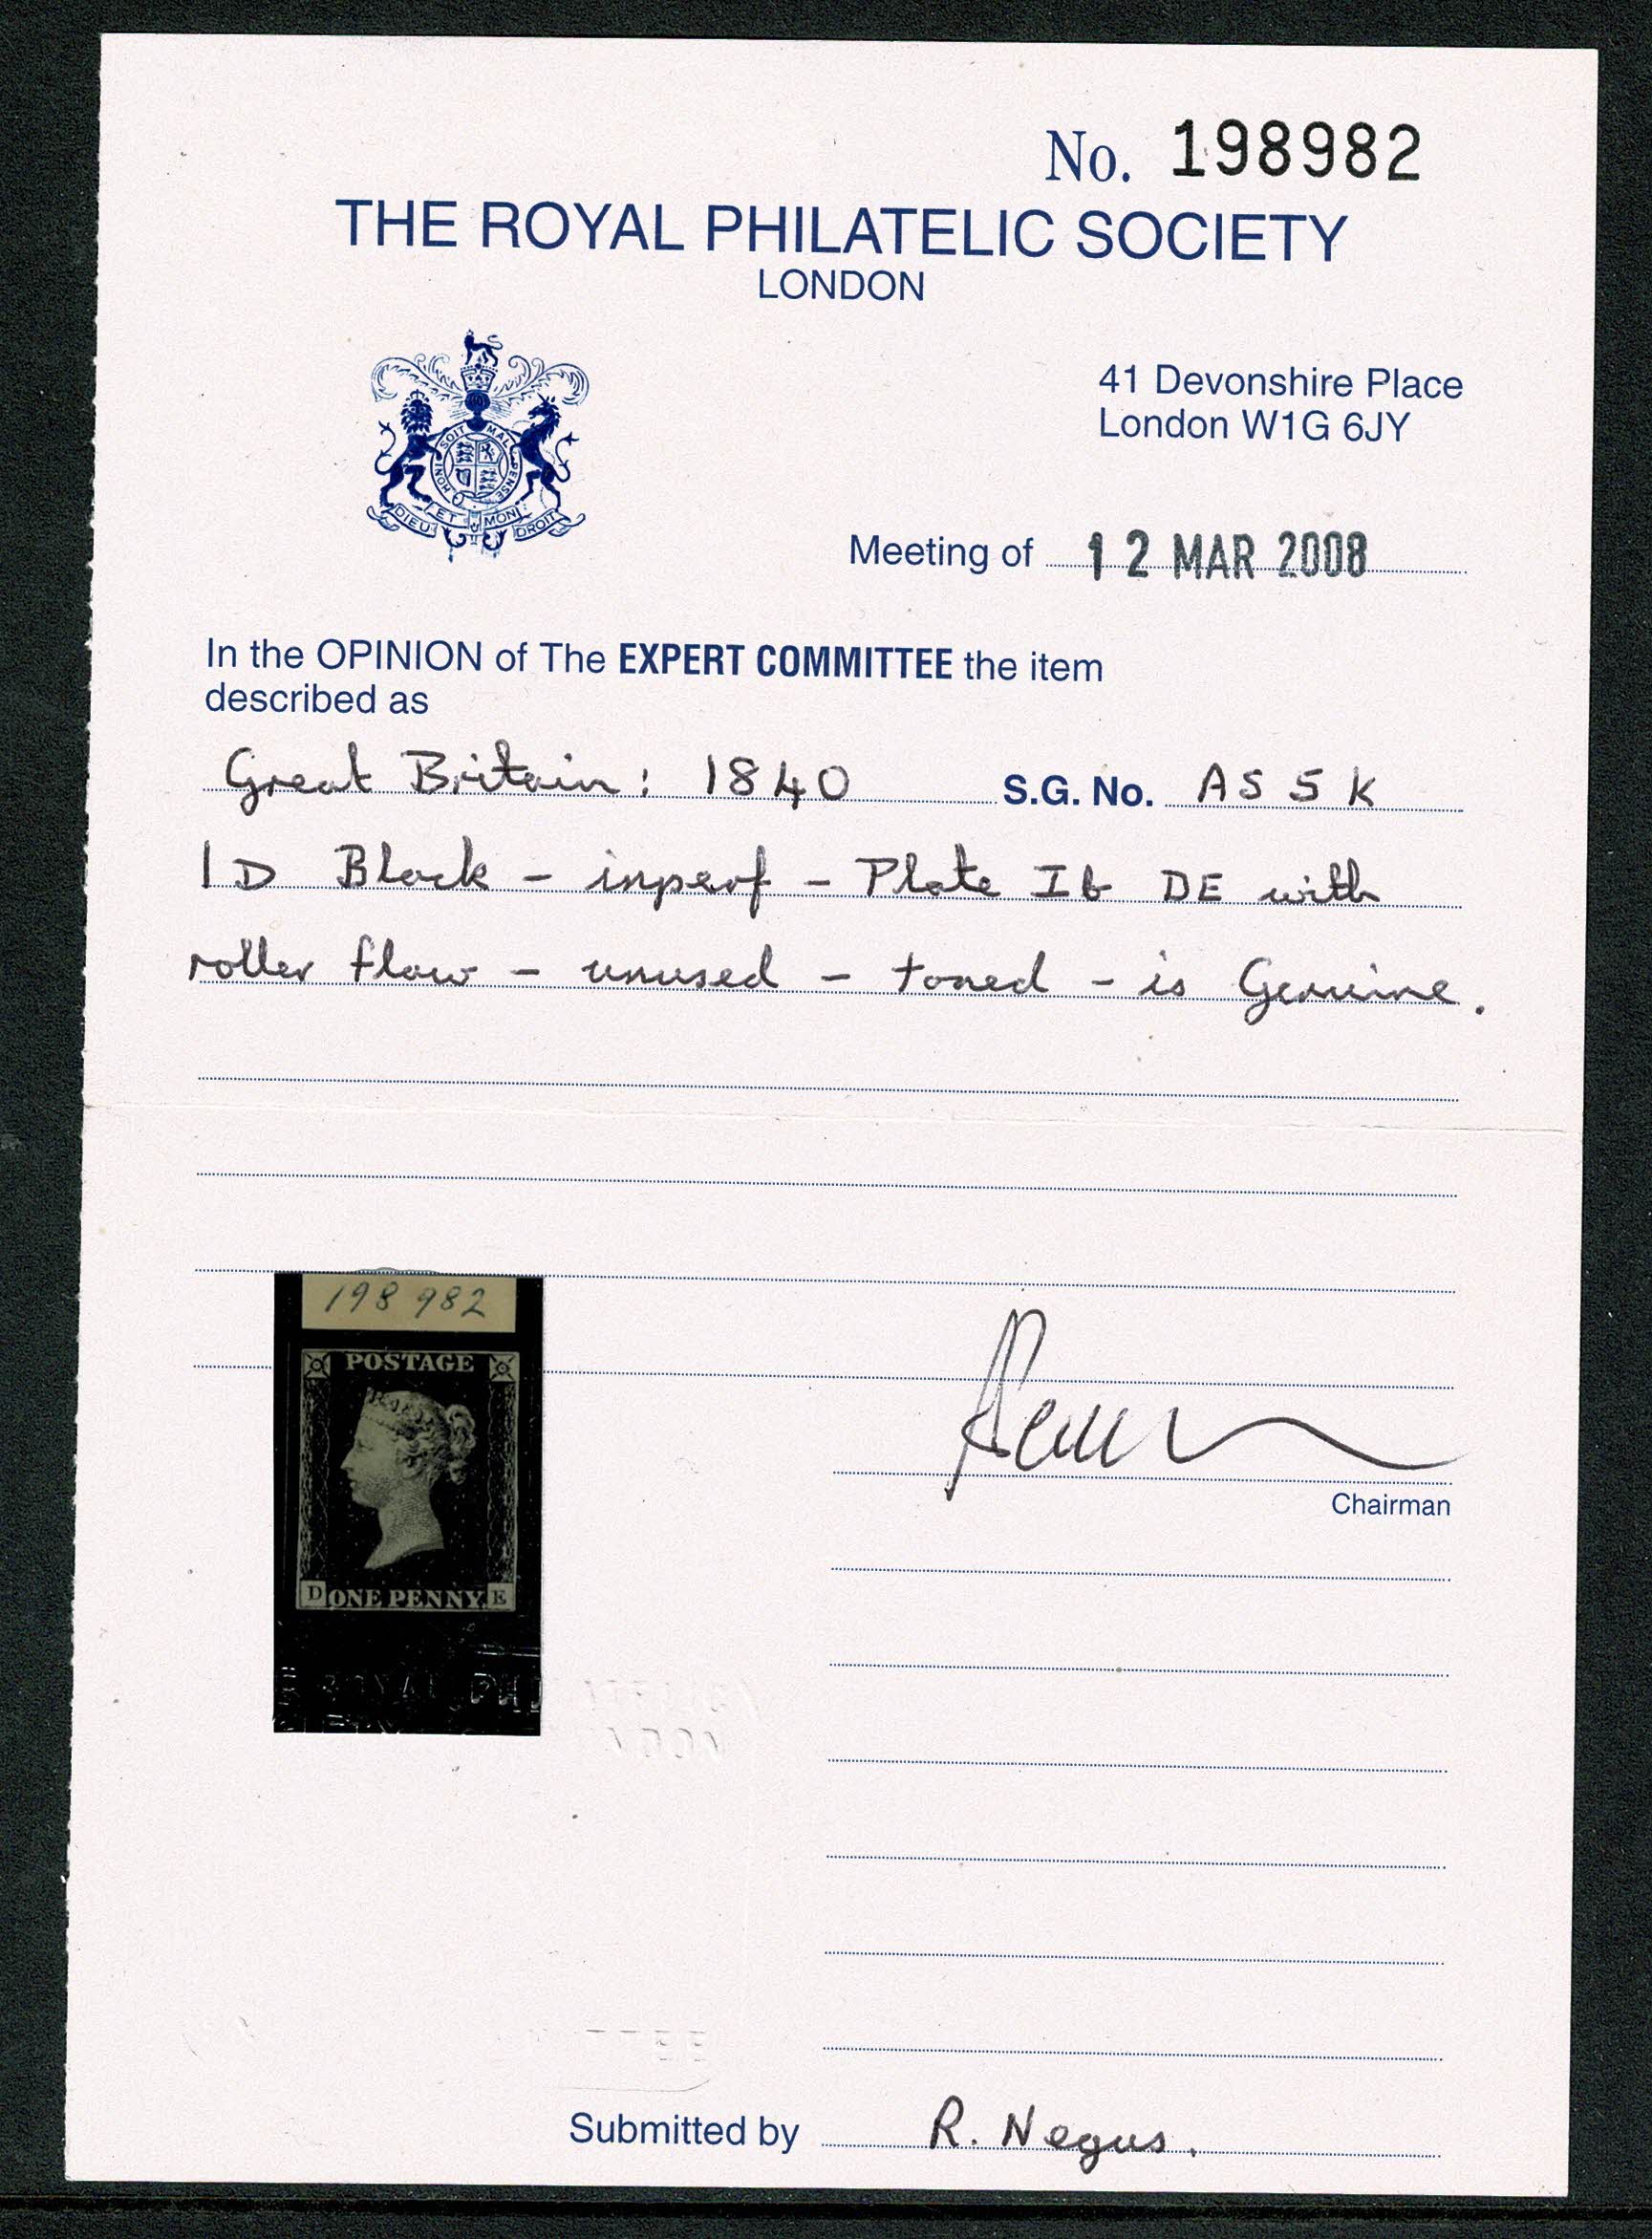 No. 198982
THE ROYAL PHILATELIC SOCIETY
LONDON
41 Devonshire Place
London W1G 6JY
SOIT MAL PENSE HONI
DIEU ET MON DROIT
Meeting of 12 MAR 2008
In the OPINION of The EXPERT COMMITTEE the item
described as
Great Britain: 1840 S.G. No. AS 5 K
1D Black - imperf - Plate Ib DE with
roller flaw - unused - toned - is Genuine.
198 982
POSTAGE
D ONE PENNY. E
Chairman
Submitted by R. Negus.